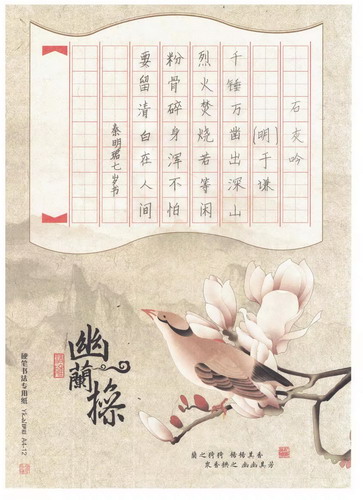 石灰吟
(明)于谦
千锤万凿出深山
烈火焚烧若等闲
粉骨碎身浑不怕
要留清白在人间
秦明 七岁书
幽蘭操
硬笔书法专用纸 A4-12
蘭之猗猗 扬扬其香
眾香拱之 幽幽其芳